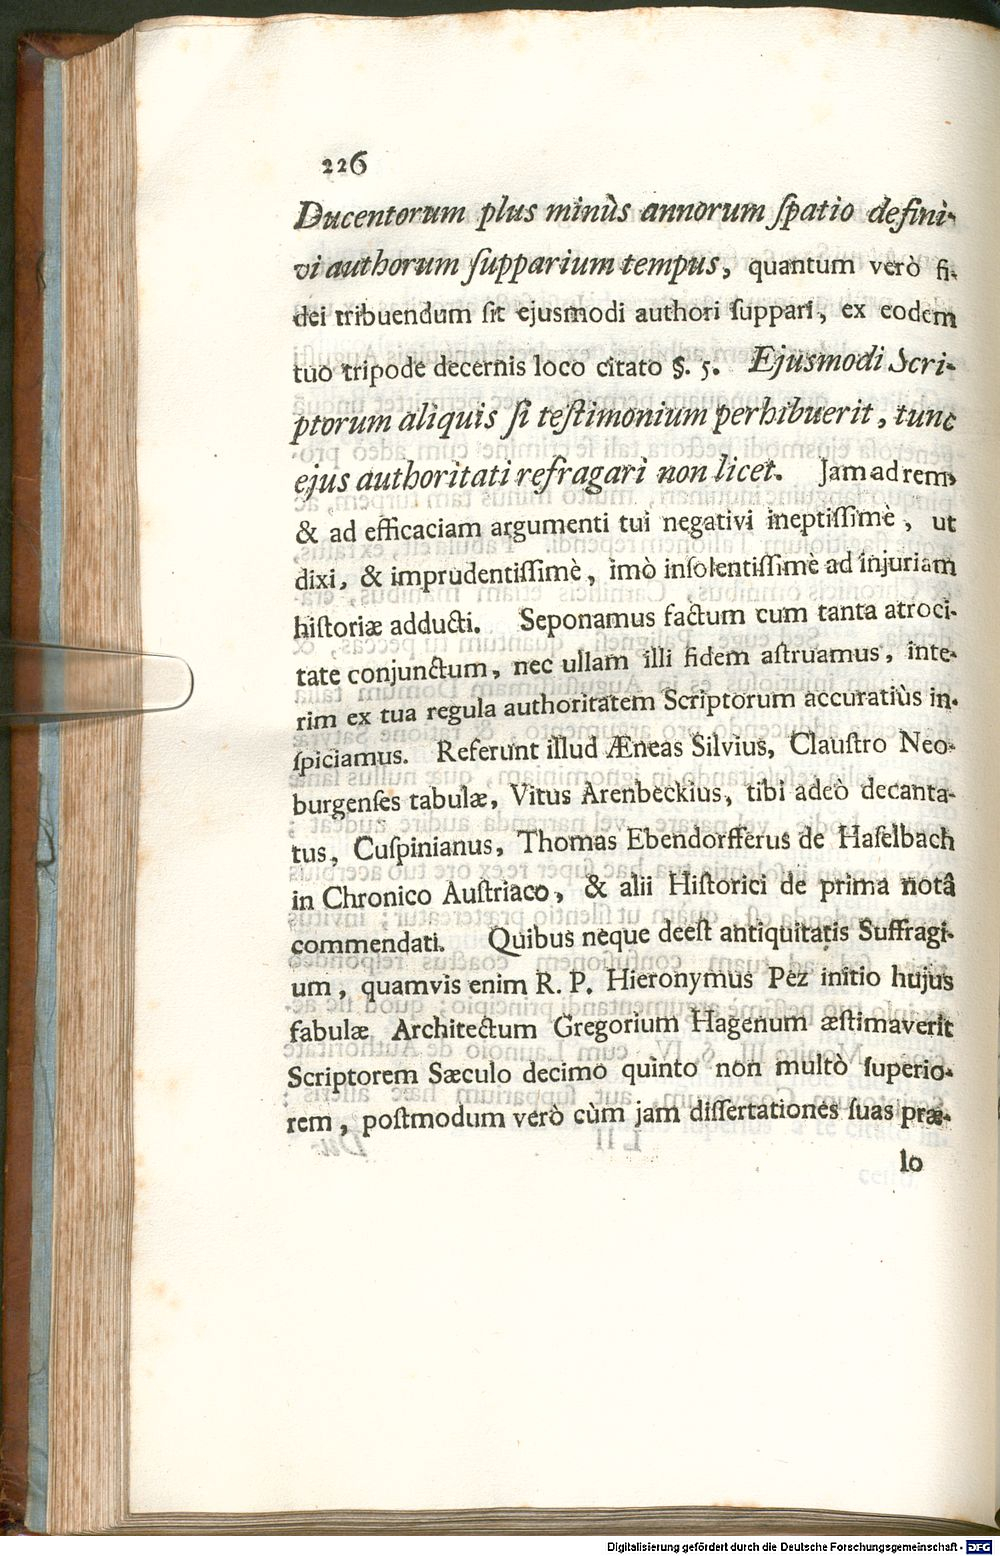 226
Ducentorum plus minùs annorum ſpatio defini-
vi authorum ſupparium tempus, quantum verò fi-
dei tribuendum ſit ejusmodi authori ſuppari, ex eodem
tuo tripode decernis loco citato §. 5. Ejusmodi Scri-
ptorum aliquis ſi teſtimonium perhibuerit, tunc
ejus authoritati refragari non licet. Jam ad rem,
& ad efficaciam argumenti tui negativi ineptiſſimè, ut
dixi, & imprudentiſſimè, imò inſolentiſſimè ad injuriam
hiſtoriæ adducti. Seponamus factum cum tanta atroci-
tate conjunctum, nec ullam illi fidem aſtruamus, inte-
rim ex tua regula authoritatem Scriptorum accuratiùs in-
ſpiciamus. Referunt illud Æneas Silvius, Clauſtro Neo-
burgenſes tabulæ, Vitus Arenbeckius, tibi adeò decanta-
tus, Cuſpinianus, Thomas Ebendorfferus de Haſelbach
in Chronico Auſtriaco, & alii Hiſtorici de prima notâ
commendati. Quibus neque deeſt antiquitatis Suffragi-
um, quamvis enim R. P. Hieronymus Pez initio hujus
fabulæ Architectum Gregorium Hagenum æſtimaverit
Scriptorem Sæculo decimo quinto non multò ſuperio-
rem, poſtmodum verò cùm jam diſſertationes ſuas præ-
lo
Digitalisierung gefördert durch die Deutsche Forschungsgemeinschaft - DFG